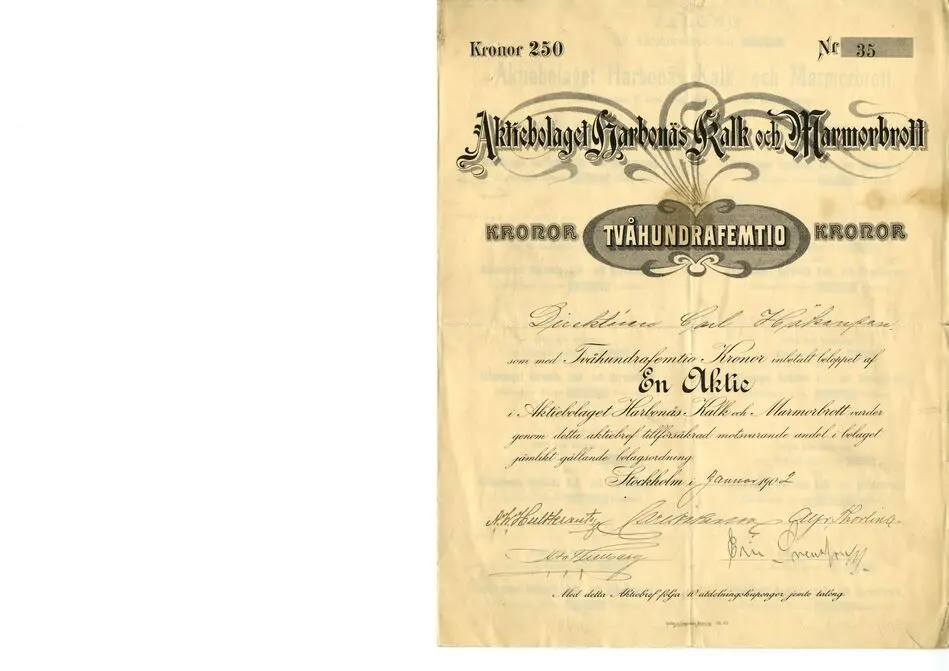 Kronor 250
Nr 35
Aktiebolaget Harbonäs Kalk och Marmorbrott
KRONOR TVÅHUNDRAFEMTIO KRONOR
Direktören Carl Håkanson
som med Tvåhundrafemtio Kronor inbetalt beloppet af
En Aktie
i Aktiebolaget Harbonäs Kalk och Marmorbrott varder
genom detta aktiebref tillförsäkrad motsvarande andel i bolaget
jämlikt gällande bolagsordning.
Stockholm i Januari 1902
Eric Svensson
Med detta Aktiebref följa 10 utdelningskuponger jemte talong.